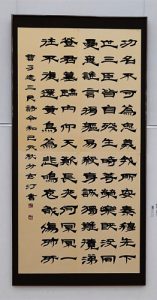 功名不可為忠義我所安秦穆先下
世三臣皆自殘生時等榮樂既沒同
憂患誰言捐軀易殺身誠獨難攬涕
登君墓臨穴仰天歎長夜何冥冥一
往不復還黃鳥為悲鳴哀哉傷肺肝
曹子建三良詩 己亥秋分 書